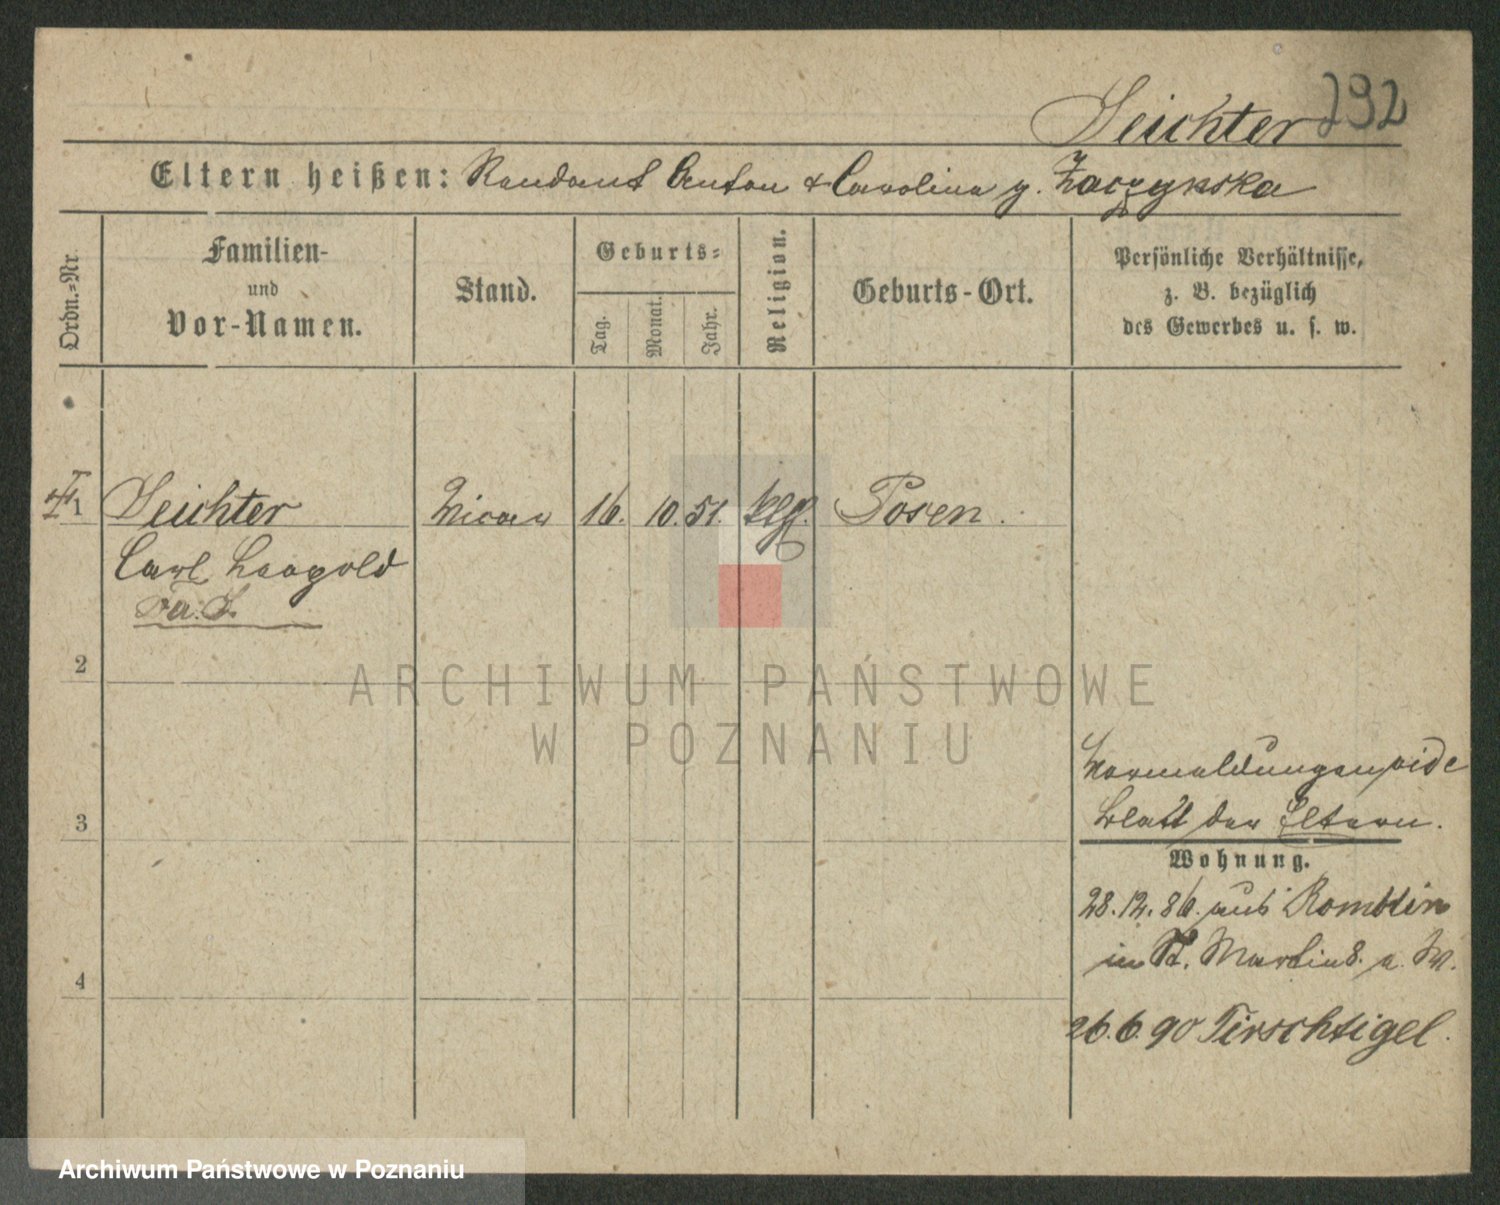 Seichter 292
Eltern heißen: Rendant Anton & Carolina g. Zaczynska
Ordn.-Nr.
Familien-
und
Vor-Namen.
Stand.
Geburts-
Tag.
Monat.
Jahr.
Religion.
Geburts-Ort.
Persönliche Verhältnisse,
z. B. bezüglich
des Gewerbes u. s. w.
1 Seichter Vicar 16. 10. 51. Posen.
Carl Leopold
2
ARCHIWUM PAŃSTWOWE
W POZNANIU
3
4
Vermeldungen vide
Blatt der Eltern.
Wohnung.
28. 12. 86. aus
in St. Martin 8. a. W.
26. 6. 90 Tirschtigel.
Archiwum Państwowe w Poznaniu